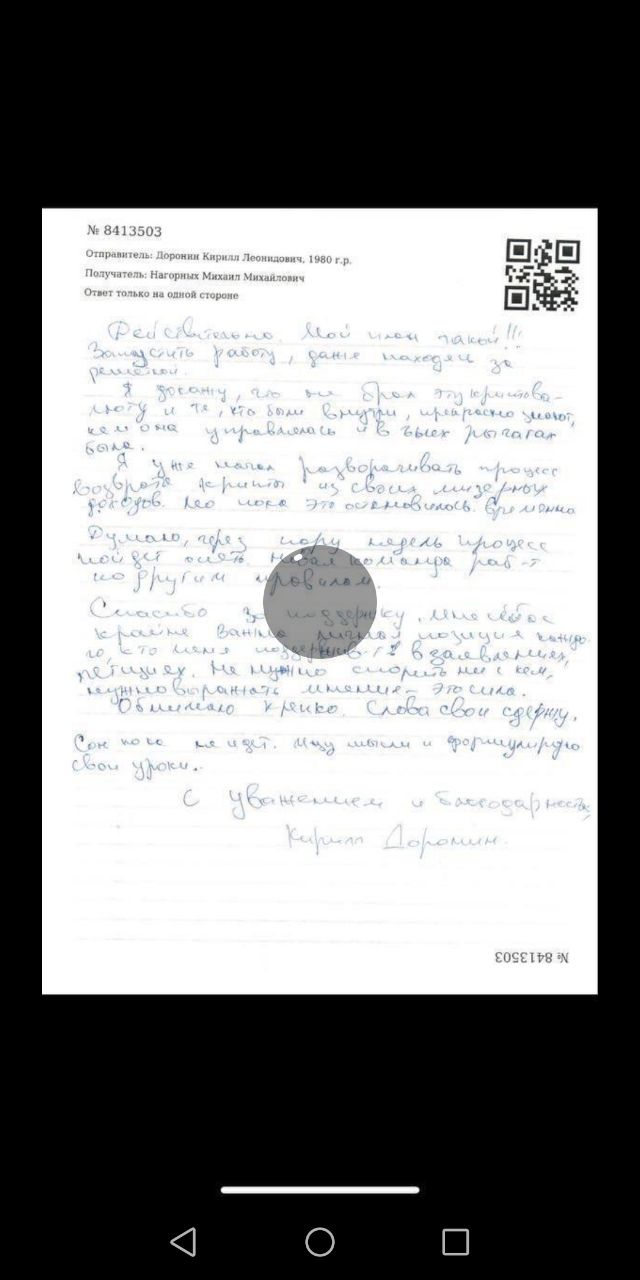 № 8413503
Отправитель: Доронин Кирилл Леонидович, 1980 г.р.
Получатель: Нагорных Михаил Михайлович
Ответ только на одной стороне
Действительно. Мой план такой!!!
Запустить работу, даже находясь за
решёткой.
Я докажу, что не брал эту криптова-
люту и те, кто были внутри, прекрасно знают,
кем она управлялась и в чьих рычагах
была.
Я уже начал разворачивать процесс
возврата крипты из своих мизерных
доходов. Но пока это остановилось. Временно
Думаю, через пару недель процесс
пойдёт опять. команда раб-т
по другим правилам.
Спасибо за поддержку. Мне
крайне важна личная позиция каждо-
го, кто меня в заявлениях,
петициях. Не нужно спорить ни с кем,
нужно выражать мнение - это сила.
Обнимаю крепко. Слова свои сдержу.
Сон пока не идёт. Ищу мысли и формулирую
свои уроки..
С уважением и благодарностью,
Кирилл Доронин.
№ 8413503